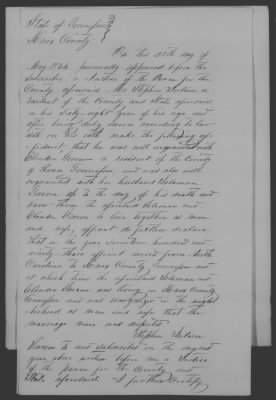 State of Tennessee
Knox County
On this 28th day of
May 1844 personally appeared before the
subscriber a Justice of the Peace for the
County aforesaid Mr Stephen
a resident of the County and State aforesaid
in his Sixty eight year of his age and
after being duly sworn according to law
doth on his oath make the following af
fidavit, that he was well acquainted with
a resident of the County
of Tennessee and was also well
acquainted with her husband Solomon
up to the day of his death and
knew them the aforesaid Solomon and
to live together as man
and wife, affiant do further declare
that in the year seventeen hundred and
ninety affiant moved from North
Carolina to Knox County Tennessee
at which time the aforesaid Solomon and
was living in Knox County
Tennessee and was recognized in the neigh
borhood as man and wife that the
marriage never was disputed
Stephen
Sworn to and subscribed on the day and
year above written before me a Justice
of the peace for the County and
State aforesaid I further Certify